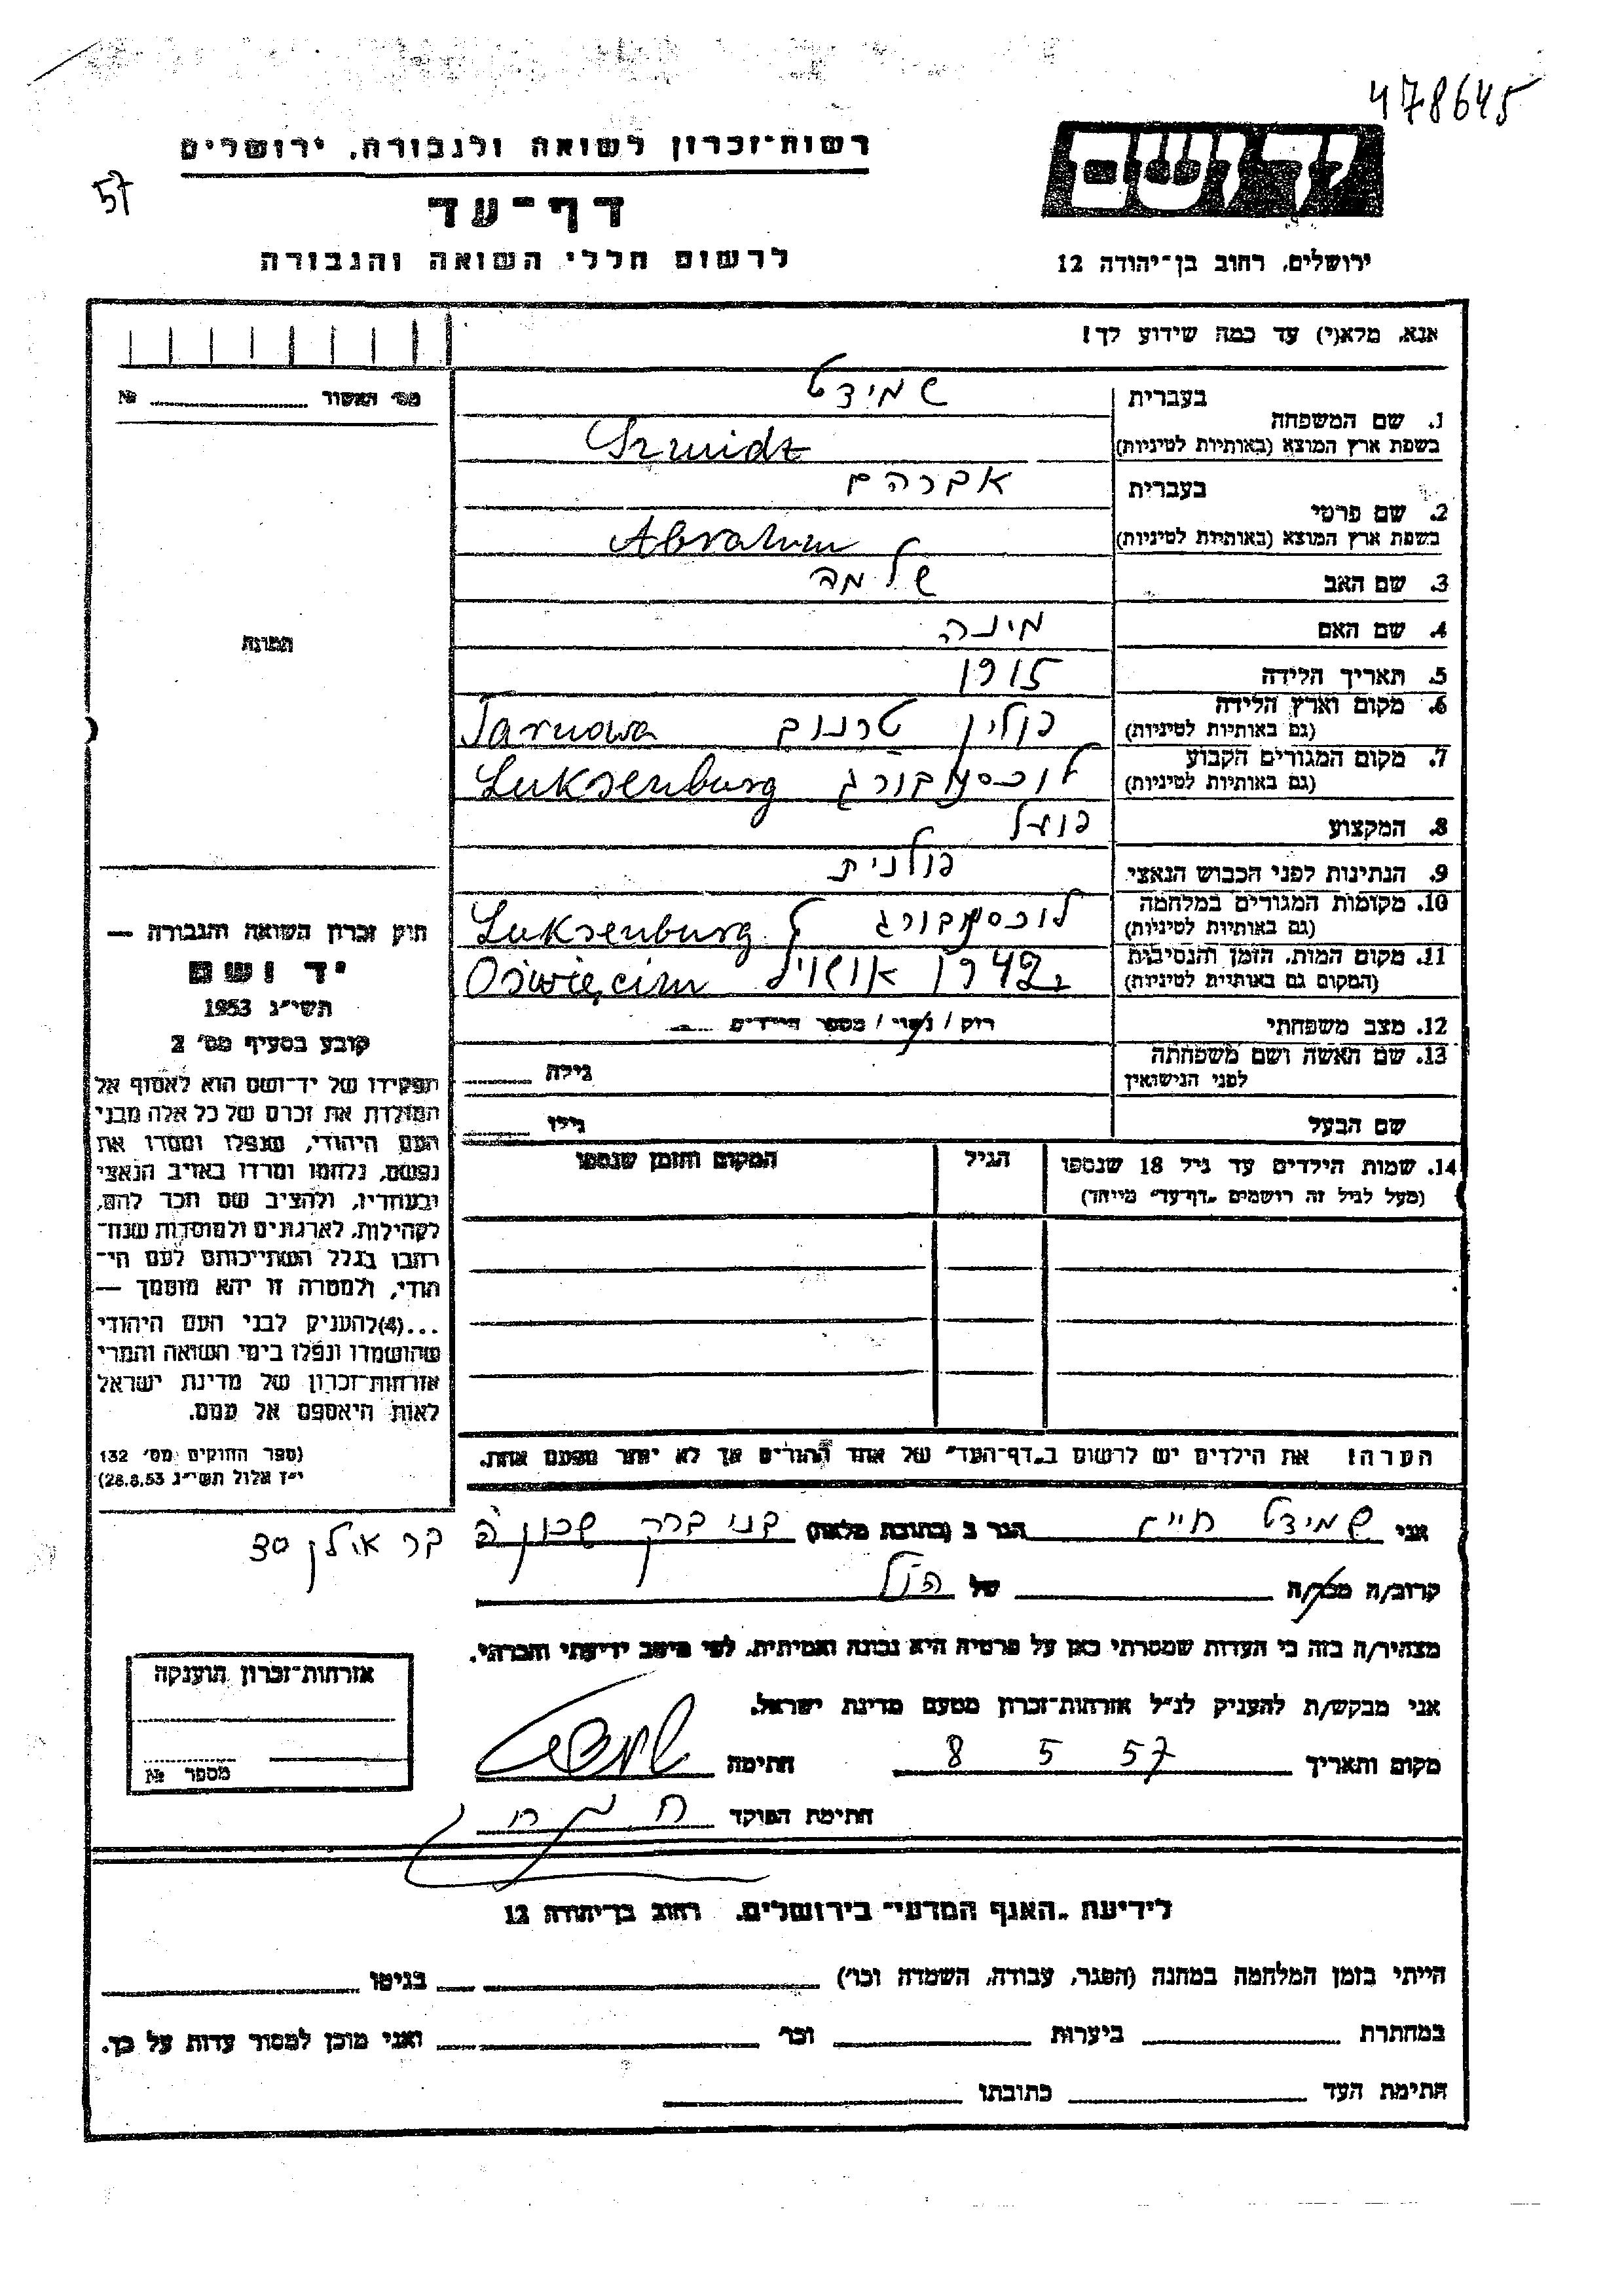 478645
יד ושם
רשות־זכרון לשואה ולגבורה, ירושלים
57
דף־עד
לרשום חללי השואה והגבורה
ירושלים, רחוב בן־יהודה 12
אנא, מלא(י) עד כמה שידוע לך!
מס׳ האשור № 
1. שם המשפחה
בעברית שמידט
בשפת ארץ המוצא (באותיות לטיניות) Szmidt
2. שם פרטי
בעברית אברהם
בשפת ארץ המוצא (באותיות לטיניות) Abraham
3. שם האב שלמה
4. שם האם מינה
5. תאריך הלידה 1915
6. מקום וארץ הלידה
(גם באותיות לטיניות) פולין טרנוב Tarnowa
7. מקום המגורים הקבוע
(גם באותיות לטיניות) לוכסמבורג Luksenburg
8. המקצוע פועל
9. הנתינות לפני הכבוש הנאצי פולנית
10. מקומות המגורים במלחמה
(גם באותיות לטיניות) לוכסמבורג Luksenburg
11. מקום המות, הזמן והנסיבות
(המקום גם באותיות לטיניות) 1942 Oświęcim
12. מצב משפחתי רוק / נשוי / מספר הילדים
13. שם האשה ושם משפחתה
לפני הנישואין גילה
שם הבעל גילו
14. שמות הילדים עד גיל 18 שנספו הגיל המקום והזמן שנספו
(מעל לגיל זה רושמים „דף־עד״ מייחד)
הערה! את הילדים יש לרשום ב„דף־העד״ של אחד ההורים אך לא יותר מפעם אחת.
תמונה
חוק זכרון השואה והגבורה —
יד ושם
תשי״ג 1953
קובע בסעיף מס׳ 2
תפקידו של יד־ושם הוא לאסוף אל
המולדת את זכרם של כל אלה מבני
העם היהודי, שנפלו ומסרו את
נפשם, נלחמו ומרדו באויב הנאצי
ובעוזריו, ולהציב שם וזכר להם,
לקהילות, לארגונים ולמוסדות שנח־
רבו בגלל השתייכותם לעם הי־
הודי, ולמטרה זו יהא מוסמך —
...(4)להעניק לבני העם היהודי
שהושמדו ונפלו בימי השואה והמרי
אזרחות־זכרון של מדינת ישראל
לאות היאספם אל עמם.
(ספר החוקים מס׳ 132
י״ז אלול תשי״ג 28.8.53)
אני שמידט חיים הגר ב (כתובת מלאה) בני ברק שכון ה בר אילן 30
קרוב/ה מכר/ה של הנ״ל
מצהיר/ה בזה כי העדות שמסרתי כאן על פרטיה היא נכונה ואמיתית, לפי מיטב ידיעתי והכרתי.
אני מבקש/ת להעניק לנ״ל אזרחות־זכרון מטעם מדינת ישראל.
מקום ותאריך 8 5 57 חתימה
חתימת הפוקד
אזרחות־זכרון הוענקה
מספר №
לידיעת „האגף המדעי״ בירושלים, רחוב בן־יהודה 12
הייתי בזמן המלחמה במחנה (הסגר, עבודה, השמדה וכו׳) בגיטו
במחתרת ביערות וכו׳ ואני מוכן למסור עדות על כך.
חתימת העד כתובתו